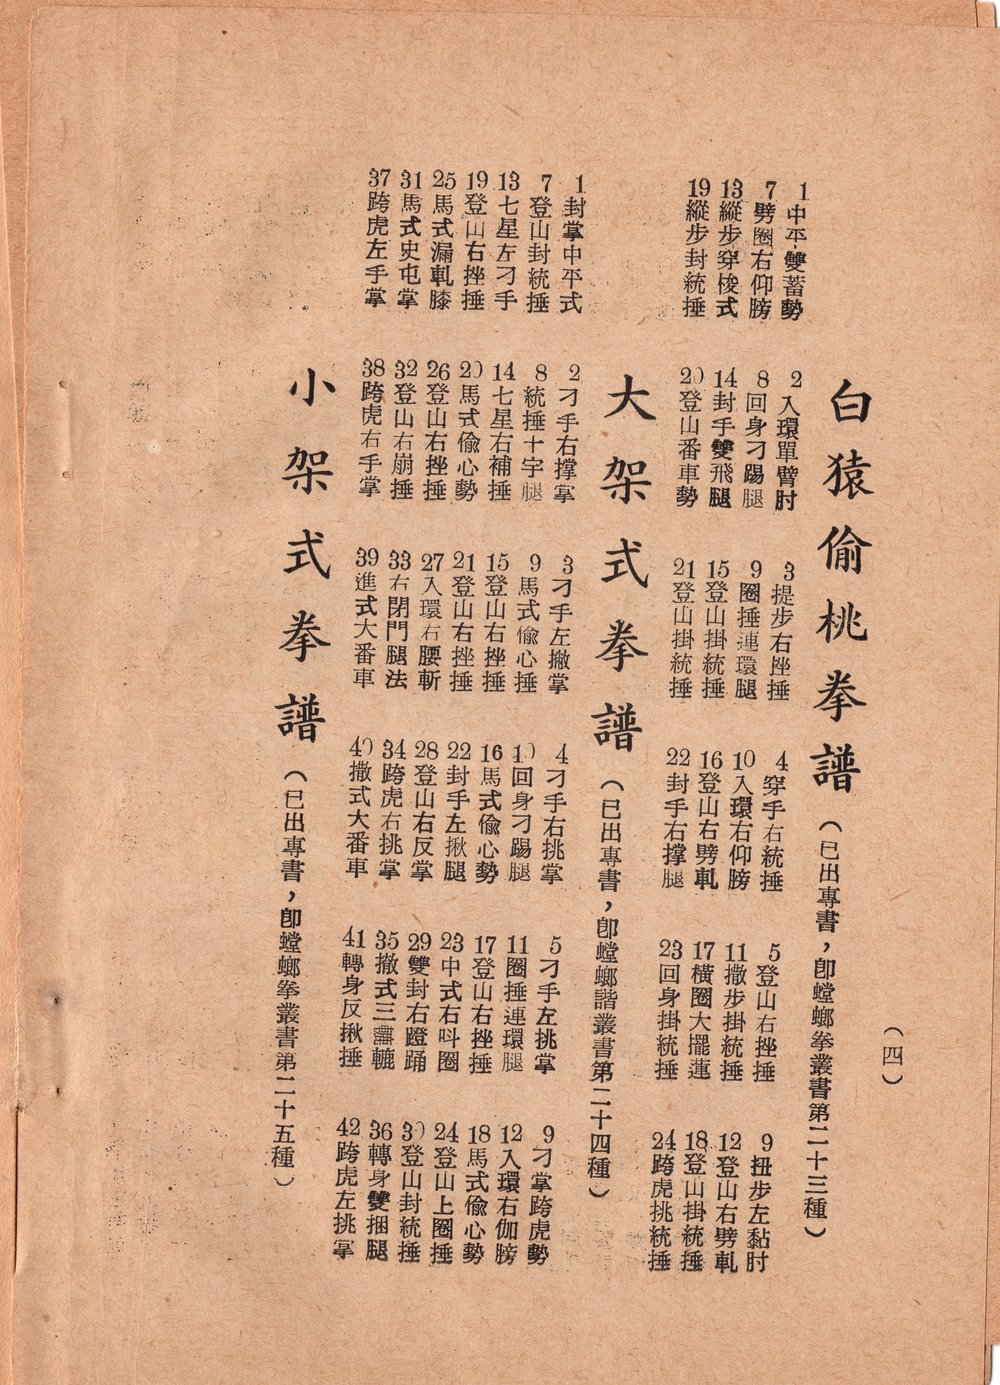 （四）
白猿偷桃拳譜（已出專書，卽螳螂拳叢書第二十三種）
1中平雙蓄勢 2入環單臂肘 3提步右挫捶 4穿手右統捶 5登山右挫捶 9扭步左黏肘
7劈圈右仰膀 8回身刁踢腿 9圈捶連環腿 10入環右仰膀 11撒步掛統捶 12登山右劈軋
13縱步穿梭式 14封手雙飛腿 15登山掛統捶 16登山右劈軋 17橫圈大擺蓮 18登山掛統捶
19縱步封統捶 20登山番車勢 21登山掛統捶 22封手右撑腿 23回身掛統捶 24跨虎挑統捶
大架式拳譜（已出專書，卽螳螂譜叢書第二十四種）
1封掌中平式 2刁手右撑掌 3刁手左撇掌 4刁手右挑掌 5刁手左挑掌 9刁掌跨虎勢
7登山封統捶 8統捶十字腿 9馬式偸心捶 10回身刁踢腿 11圈捶連環腿 12入環右伽膀
13七星左刁手 14七星右補捶 15登山右挫捶 16馬式偸心勢 17登山右挫捶 18馬式偸心勢
19登山右挫捶 20馬式偸心勢 21登山右挫捶 22封手左揪腿 23中式右呌圈 24登山上圈捶
25馬式漏軋膝 26登山右挫捶 27入環右腰斬 28登山右反掌 29雙封右蹬踊 30登山封統捶
31馬式史屯掌 32登山右崩捶 33右閉門腿法 34跨虎右挑掌 35撤式三轆 36轉身雙捆腿
37跨虎左手掌 38跨虎右手掌 39進式大番車 40撒式大番車 41轉身反揪捶 42跨虎左挑掌
小架式拳譜（已出專書，卽螳螂拳叢書第二十五種）